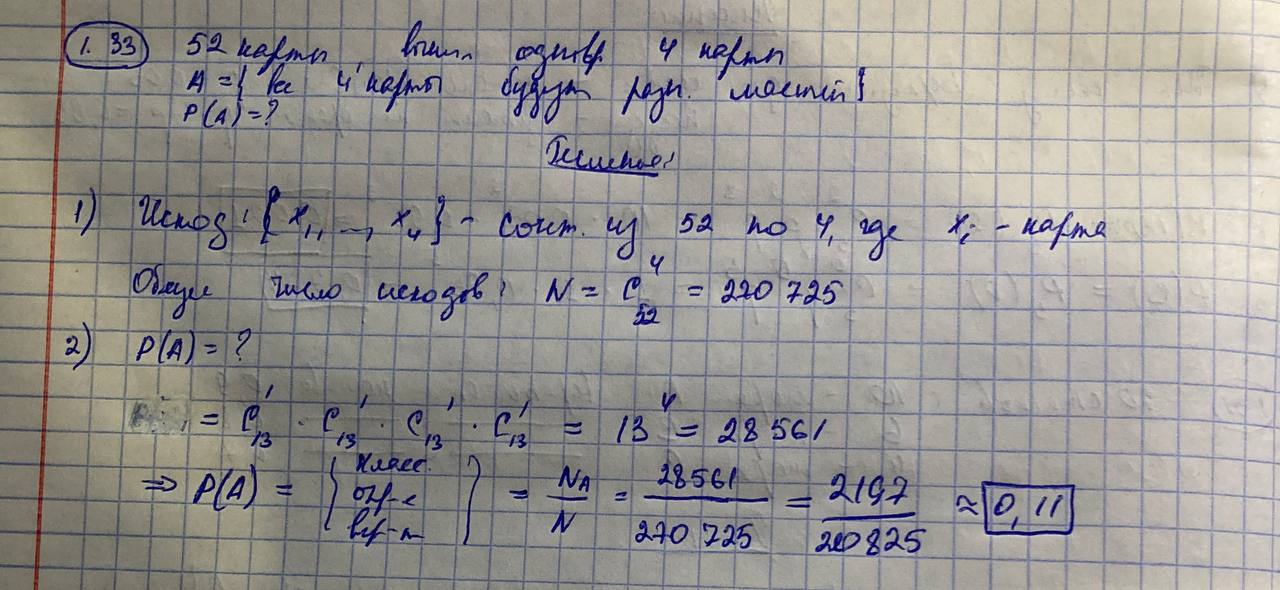 1.33 52 карты, выним. одновр. 4 карты
A = { все 4 карты будут разн. мастей }
P(A) = ?
Решение:
1) Исход: {x₁, ..., x₄} - сочт. из 52 по 4, где xᵢ - карта
Общее число исходов: N = C₅₂⁴ = 220 725
2) P(A) = ?
= C₁₃¹ · C₁₃¹ · C₁₃¹ · C₁₃¹ = 13⁴ = 28 561
⇒ P(A) = { класс. опр-е вер-т } = N_A / N = 28561 / 270 725 = 2197 / 20825 ≈ 0,11